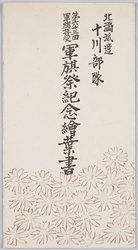 北満派遣
十川部隊
第六十三回
軍旗拝受
軍旗祭紀念繪葉書